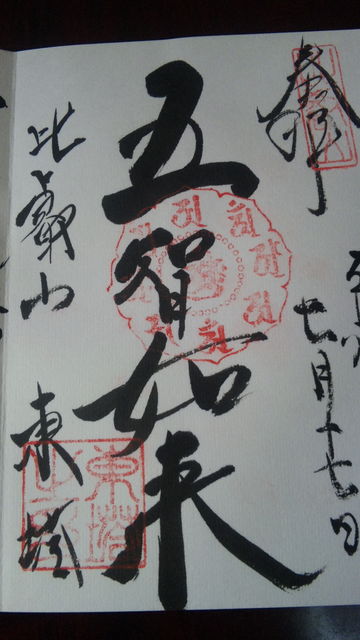 奉拝
七月十七日
五智如来
比叡山
東塔